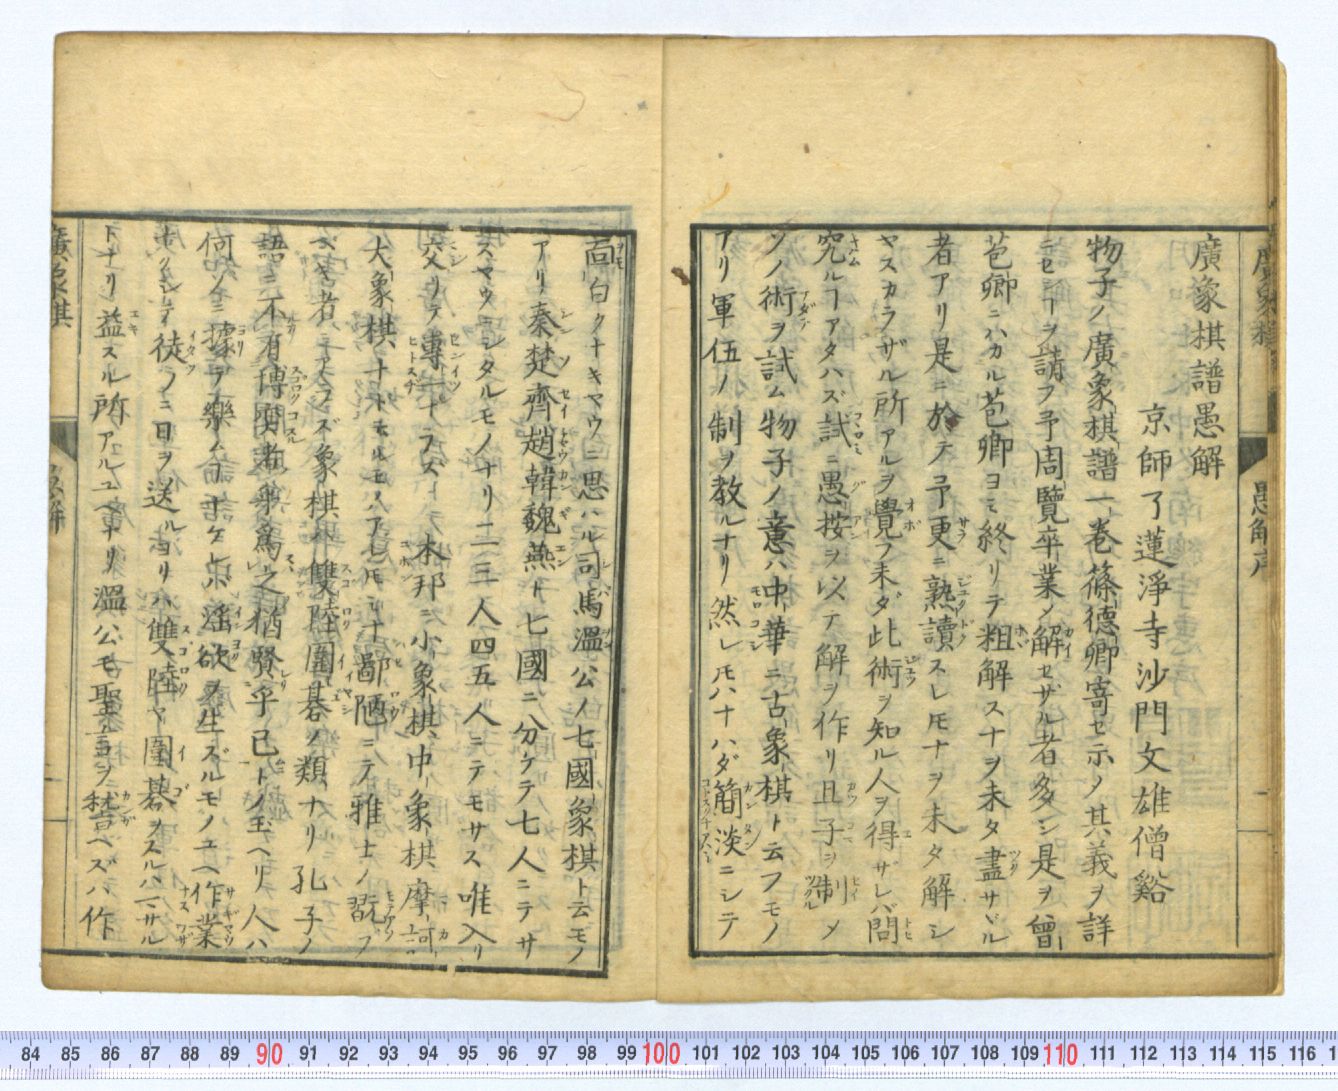 廣象棋譜愚解
京師了蓮淨寺沙門文雄僧谿
物子ノ廣象棋譜一巻篠德卿寄セ示ノ其義ヲ詳
ニセヿヲ請フ予周覽卒業ノ解セザル者多シ是ヲ曾
芭卿ニハカル芭卿ヨミ終リテ粗解スナヲ未タ盡サヾル
者アリ是ニ於テ予更ニ熟讀スレ𪜈ナヲ未タ解シ
ヤスカラザル所アルヲ覺フ未ダ此術ヲ知ル人ヲ得ザレバ問
究ルヿアタハズ試ニ愚按ヲ以テ解ヲ作リ且子ヲ制メ
ソノ術ヲ試ム物子ノ意ハ中華ニ古象棋ト云フモノ
アリ軍伍ノ制ヲ教ルナリ然レ𪜈ハナハダ簡淡ニシテ
面白クナキヤウニ思ハル司馬溫公ノ七國象棋ト云モノ
アリ秦楚齊趙韓魏燕ト七國ニ分ケテ七人ニテサ
スヤウニシタルモノナリ二三人四五人ニテモサス唯入リ
交リテ專一ナラズ本邦ニ小象棋中象棋摩訶
大象棋ナド
鄙陋ニテ雅士ノ翫ブ
ベキ者ニアラズ象棋雙陸圍碁ノ類ナリ孔子ノ
語ニ不有博奕者乎為之猶賢乎已トノ玉ヘリ人ハ
何ノニ據ラ樂ムコナケレハ淫欲ヲ生ズルモノユヘ作業
ナクシテ徒ラニ日ヲ送ルヨリハ雙陸ヤ圍碁ヲスルハマサル
トナリ益スル所アルユヘナリ溫公モ聖言ヲ稽ヘズバ作
廣象棋
愚解序
廣象棋
愚解